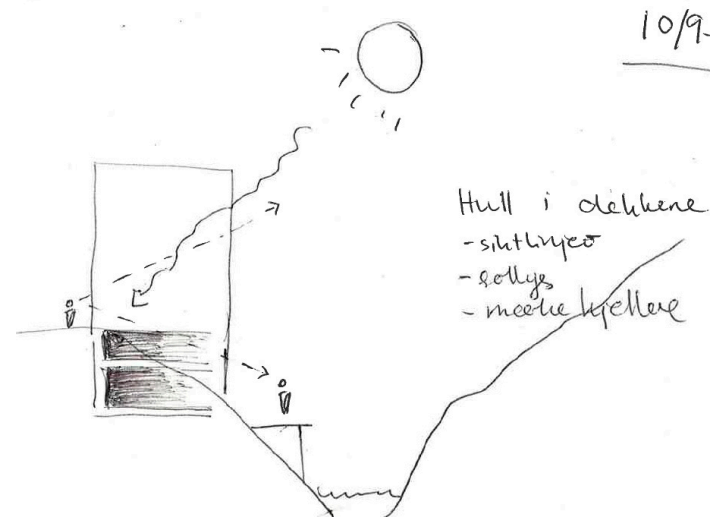 10/9-
Hull i dekkene
- siktlinjer
- sollys
- mørke kjellere